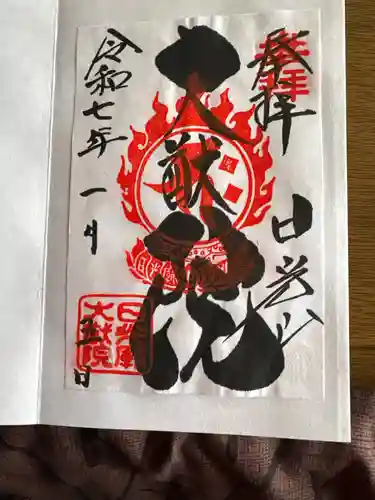 奉拝
日光山
大猷院
令和七年一月
五日
奉拝
日光山
大猷院